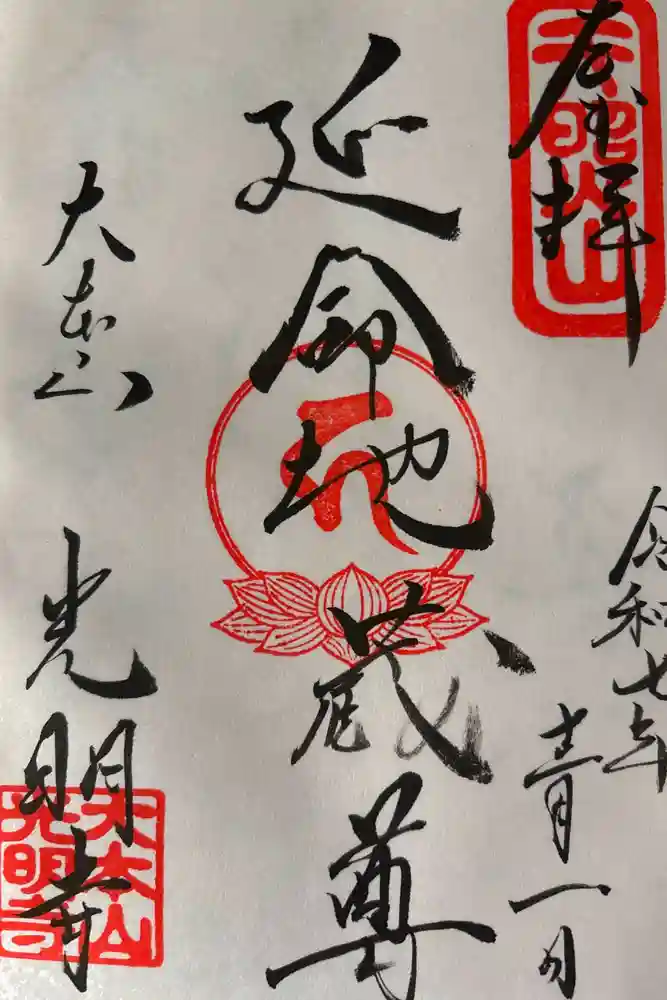 奉拝
天照山
令和七年
十二月一日
延命地蔵尊
大本山
光明寺
大本山
光明寺